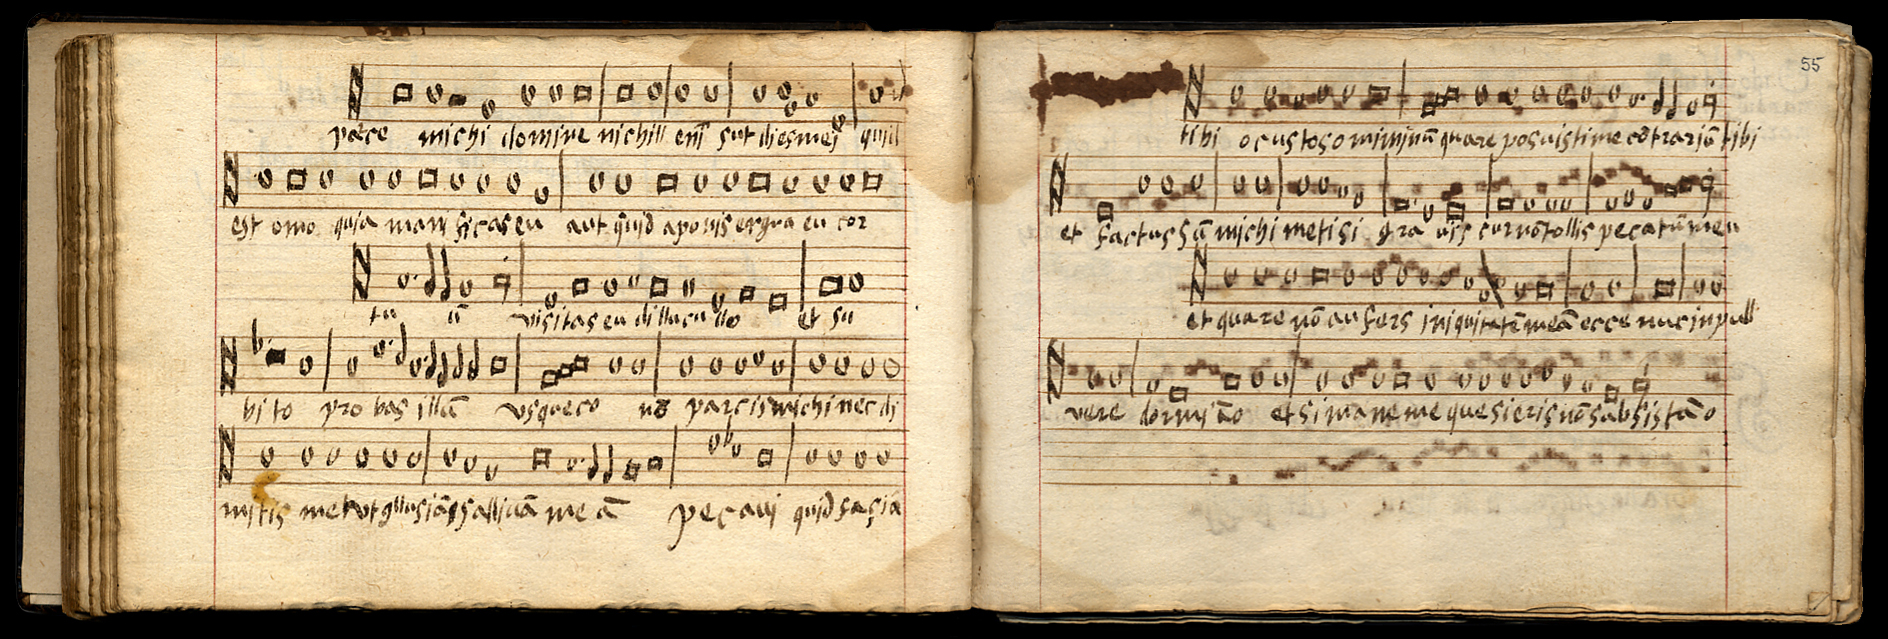 parce michi domine nichill eni̅ sut dies mei quid
est omo quia mani ficas eu aut quid aponis erga eu cor
tu u̅ visitas eu diluculo et su
bito probas illu̅ vsqueco no̅ parcis michi nec di
mitis me vt glusia̅ salliua̅ mea̅ pecaui quid fasia̅
55
tibi o custos ominu̅ quare posuisti me co̅trariu̅ tibi
et factus su̅ michi metisi gra uis cur no̅ tollis pecatu̅ meu
et quare no̅ aufers iniquitate̅ mea̅ ecce nuc in pull
vere dormia̅o et si mane me quesieris no̅ subsista̅o